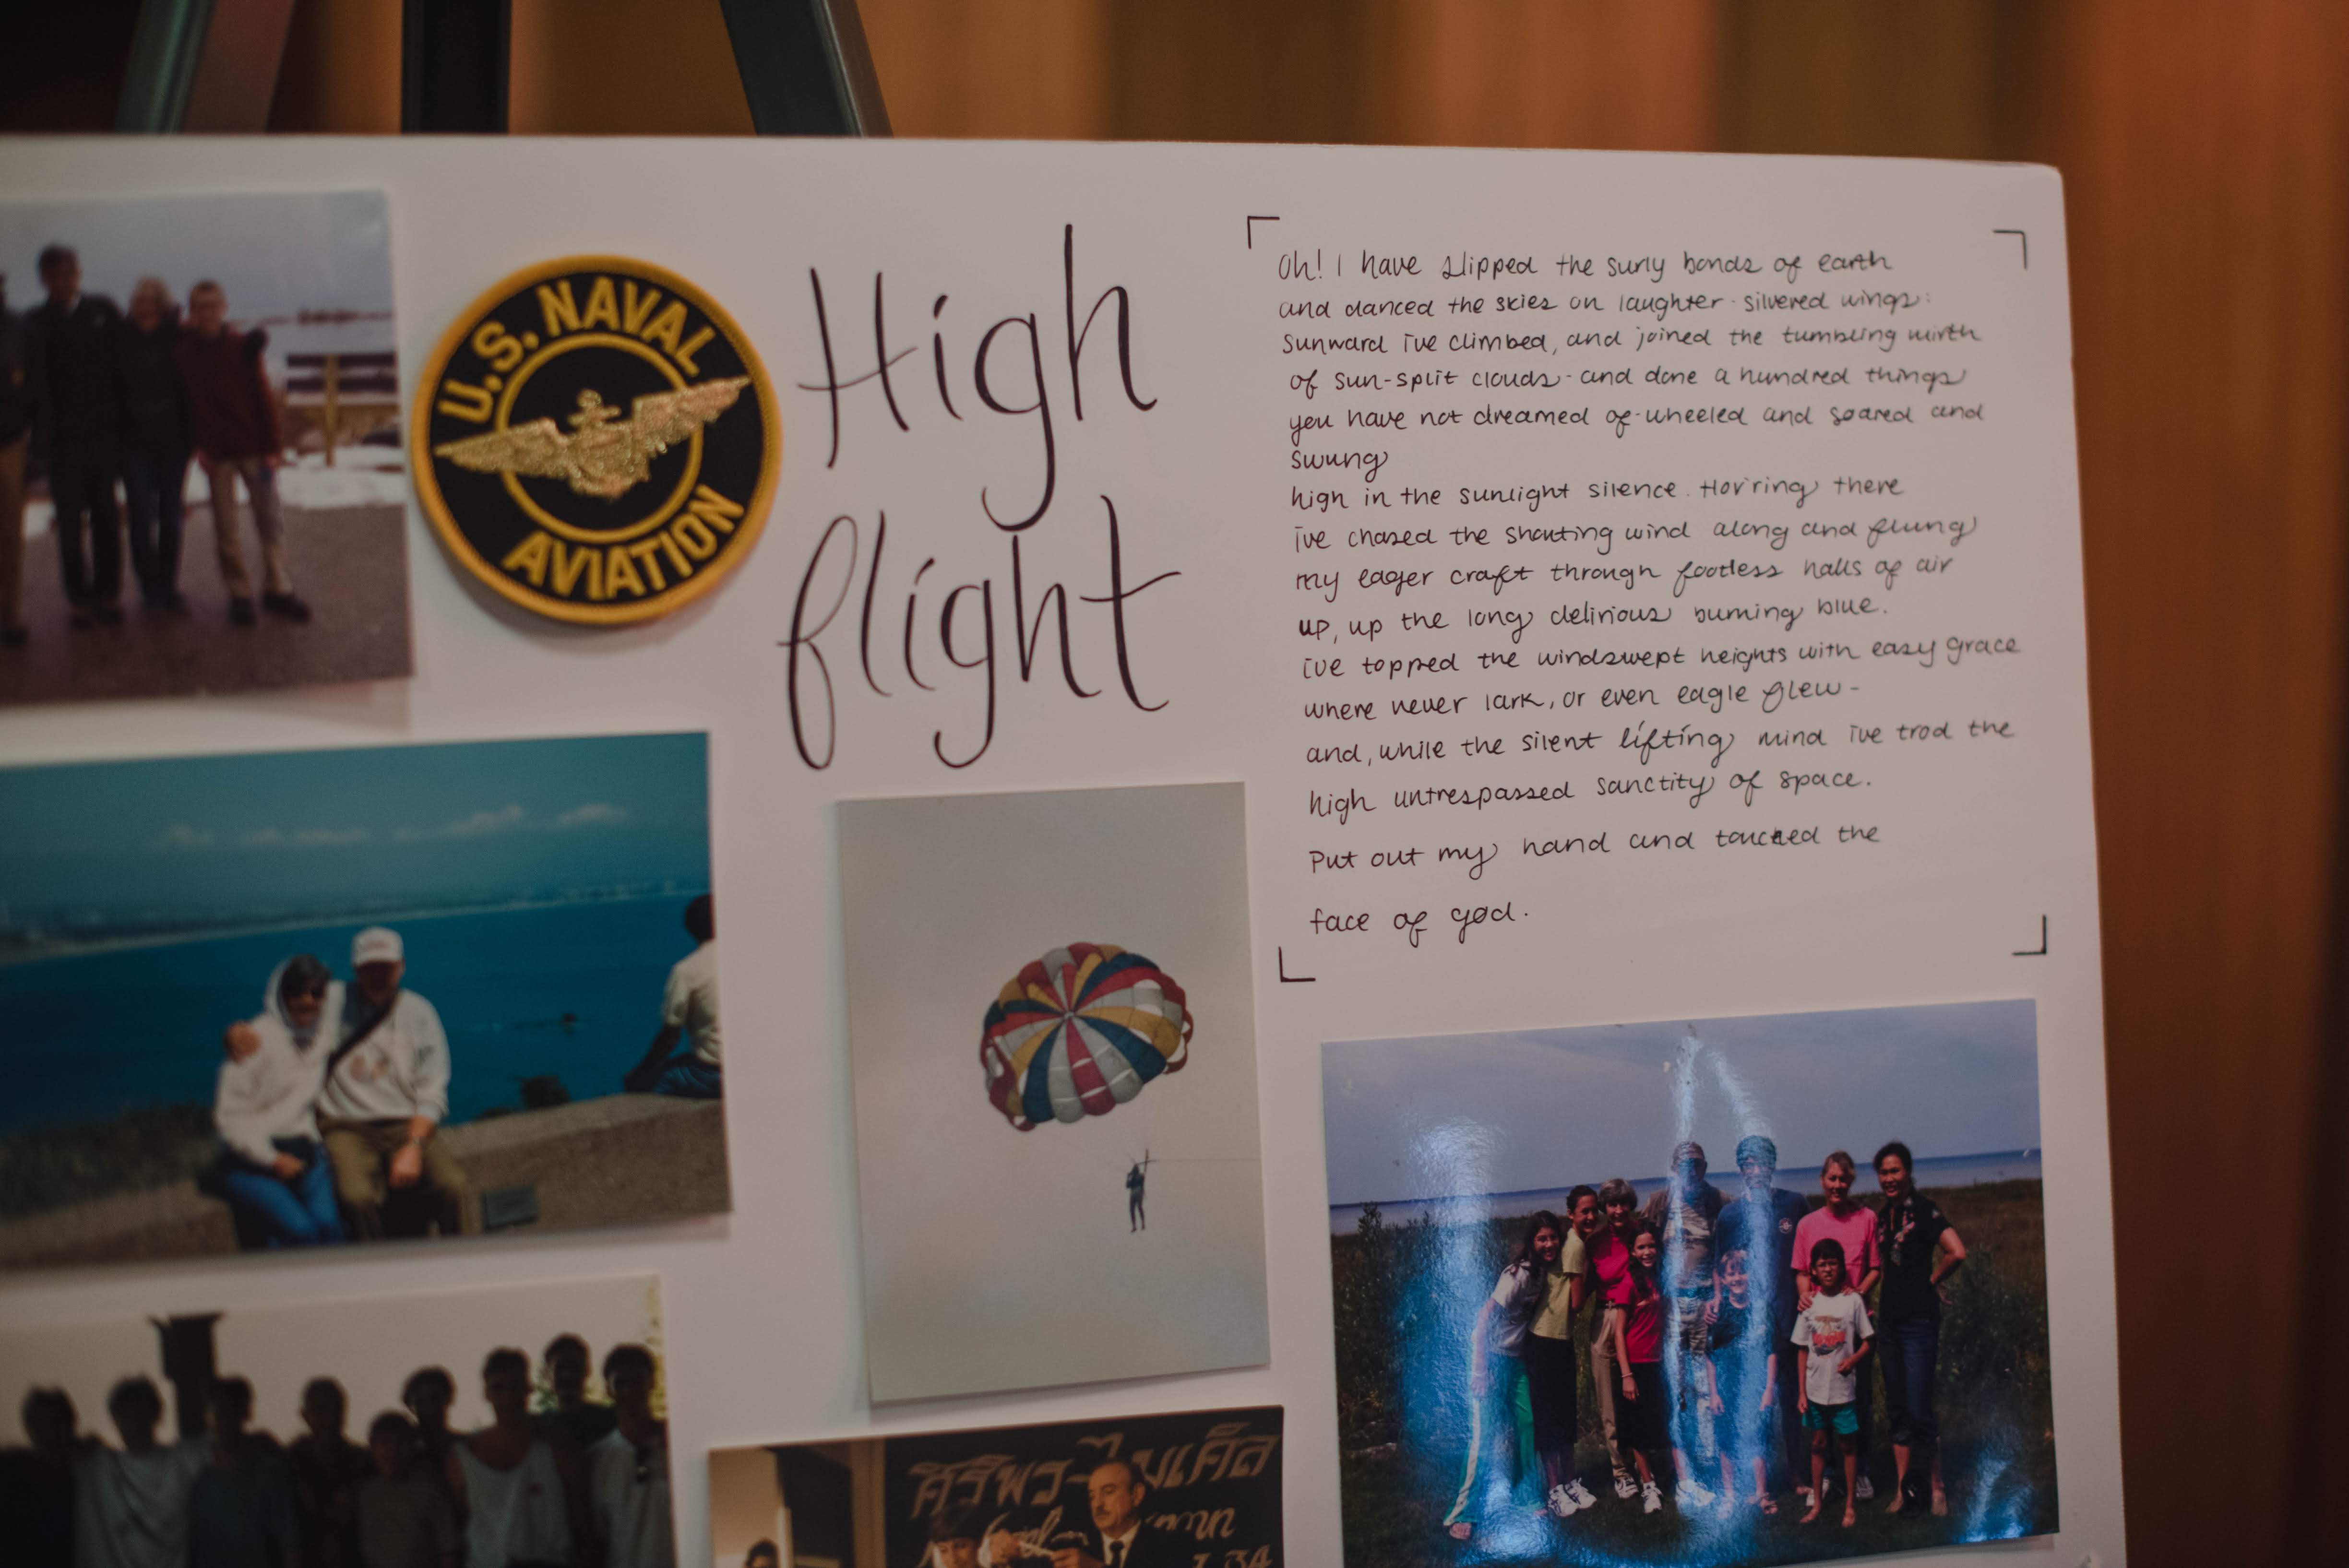 U.S. NAVAL
AVIATION
High
flight
Oh! I have slipped the surly bonds of earth
and danced the skies on laughter-silvered wings:
Sunward i've climbed, and joined the tumbling mirth
of sun-split clouds - and done a hundred things
you have not dreamed of - wheeled and soared and
swung
high in the sunlight silence. Hov'ring there
i've chased the shouting wind along and flung
my eager craft through footless halls of air
up, up the long delirious burning blue.
i've topped the windswept heights with easy grace
where never lark, or even eagle flew -
and, while the silent lifting mind i've trod the
high untrespassed sanctity of space.
Put out my hand and touched the
face of god.